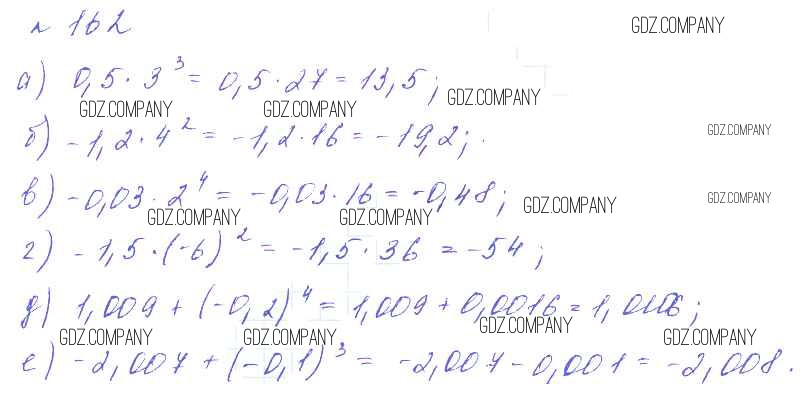 № 162 GDZ.COMPANY
а) 0,5 · 3³ = 0,5 · 27 = 13,5;
GDZ.COMPANY GDZ.COMPANY GDZ.COMPANY
б) -1,2 · 4² = -1,2 · 16 = -19,2; GDZ.COMPANY
в) -0,03 · 2⁴ = -0,03 · 16 = -0,48; GDZ.COMPANY
GDZ.COMPANY GDZ.COMPANY GDZ.COMPANY
г) -1,5 · (-6)² = -1,5 · 36 = -54;
д) 1,009 + (-0,2)⁴ = 1,009 + 0,0016 =
GDZ.COMPANY GDZ.COMPANY GDZ.COMPANY GDZ.COMPANY
е) -2,007 + (-0,1)³ = -2,007 - 0,001 = -2,008.